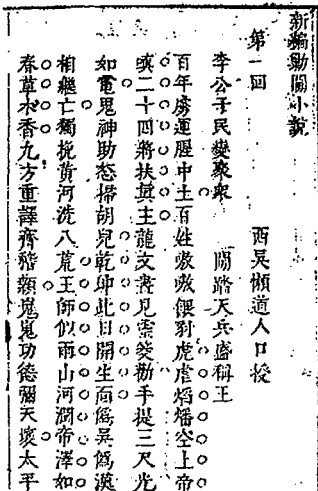 新編勦闖小說
第一回　西吳懶道人口授
李公子民變聚衆　闖踏天兵盛稱王
百年虜運腥中土百姓嗷嗷偎豺虎虐焰燔空上帝
或二十四將扶眞主龍文喜見雲夌勸手提三尺光
如電鬼神助怒掃胡兒乾坤此日開生面爲吳爲漢
相繼亡獨挽黃河洗八荒王師似雨山河潤帝澤如
春草木香九方重譯齊稽顙嵬嵬功德彌天壤太平